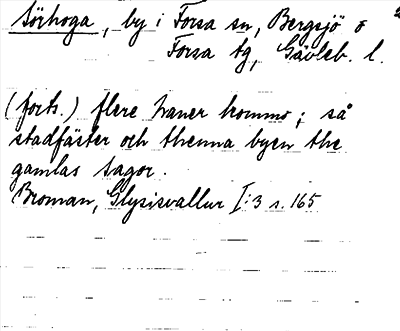 Sörhoga, by i Forsa sn, Bergsjö o
Forsa tg, Gävleb. l.
(forts.) flere haner kommo; så
stadfäster och thenna byen the
gamlas sagor.
Broman, Glysisvallur I:3 s. 165